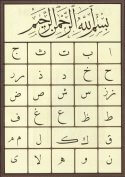 بسم الله الرحمن الرحيم
ا ب ت ث ج
ح خ د ذ ر
ز س ش ص ض
ط ظ ع غ ف
ق ك ل م
ن و ه لا ى